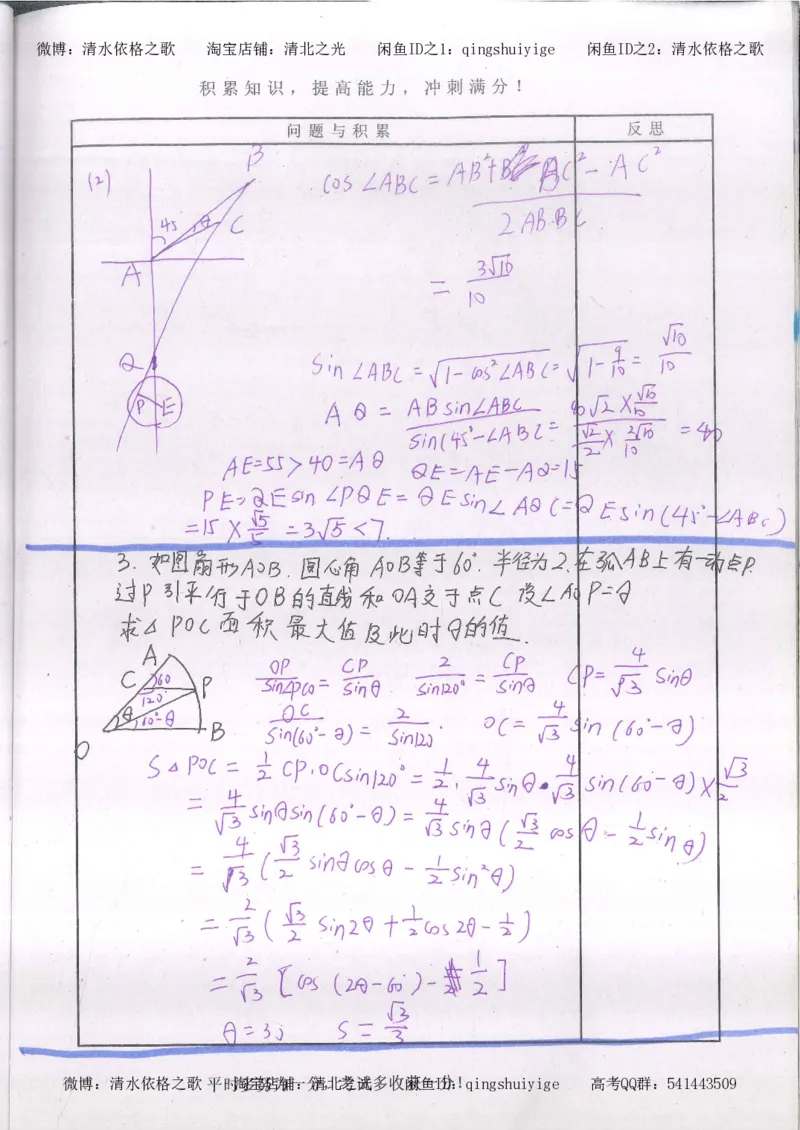 微博：清水依格之歌 淘宝店铺：清北之光 闲鱼ID之1：qingshuiyige 闲鱼ID之2：清水依格之歌
积累知识，提高能力，冲刺满分！
问题与积累 反思
(2)
B
45 θ C
A
Q
P E
cos∠ABC = (AB²+BC²-AC²)/(2AB·BC)
= 3√10/10
Sin∠ABC = √(1-cos²∠ABC) = √(1-9/10) = √10/10
AQ = ABsin∠ABC/sin(45°-∠ABC) = (40√2×√10/10)/(√2/2×2√10/10) = 40
AE=55>40=AQ QE=AE-AQ=15
PE=QEsin∠PQE=QEsin∠AQC=QEsin(45°-∠ABC)
=15×√5/5=3√5<7.
3. 如图扇形AOB. 圆心角AOB等于60°. 半径为2.在弧AB上有一动点P.
过P引平行于OB的直线和OA交于点C 设∠AOP=θ
求△POC面积最大值及此时θ的值.
A
C 60 P
120°
θ 60°-θ
O B
OP/sin∠PCO = CP/sinθ 2/sin120° = CP/sinθ CP=4/√3 sinθ
OC/sin(60°-θ) = 2/sin120. OC=4/√3 sin(60°-θ)
S△POC = 1/2 CP·OCsin120° = 1/2·4/√3 sinθ·4/√3 sin(60°-θ)×√3/2
= 4/√3 sinθsin(60°-θ) = 4/√3 sinθ(√3/2 cosθ-1/2 sinθ)
= 4/√3 (√3/2 sinθcosθ-1/2 sin²θ)
= 2/√3 (√3/2 sin2θ+1/2 cos2θ-1/2)
= 2/√3 [cos(2θ-60°)-1/2]
θ=30 S=√3/3
微博：清水依格之歌 淘宝店铺：清北之光 闲鱼ID：qingshuiyige 高考QQ群：541443509